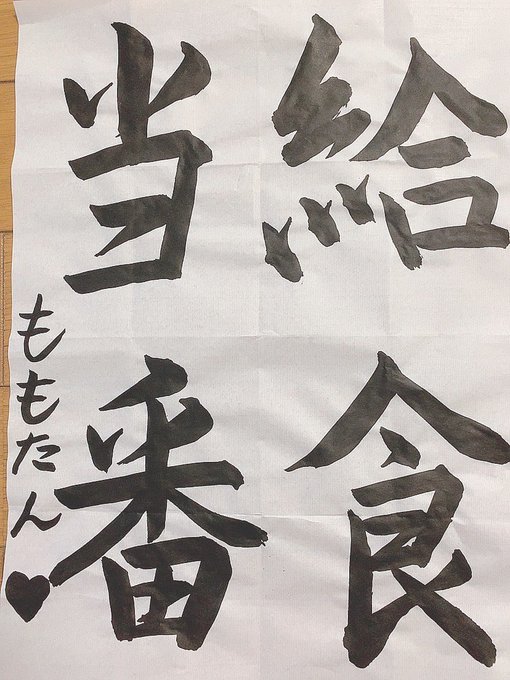 給食
当番
ももたん♥